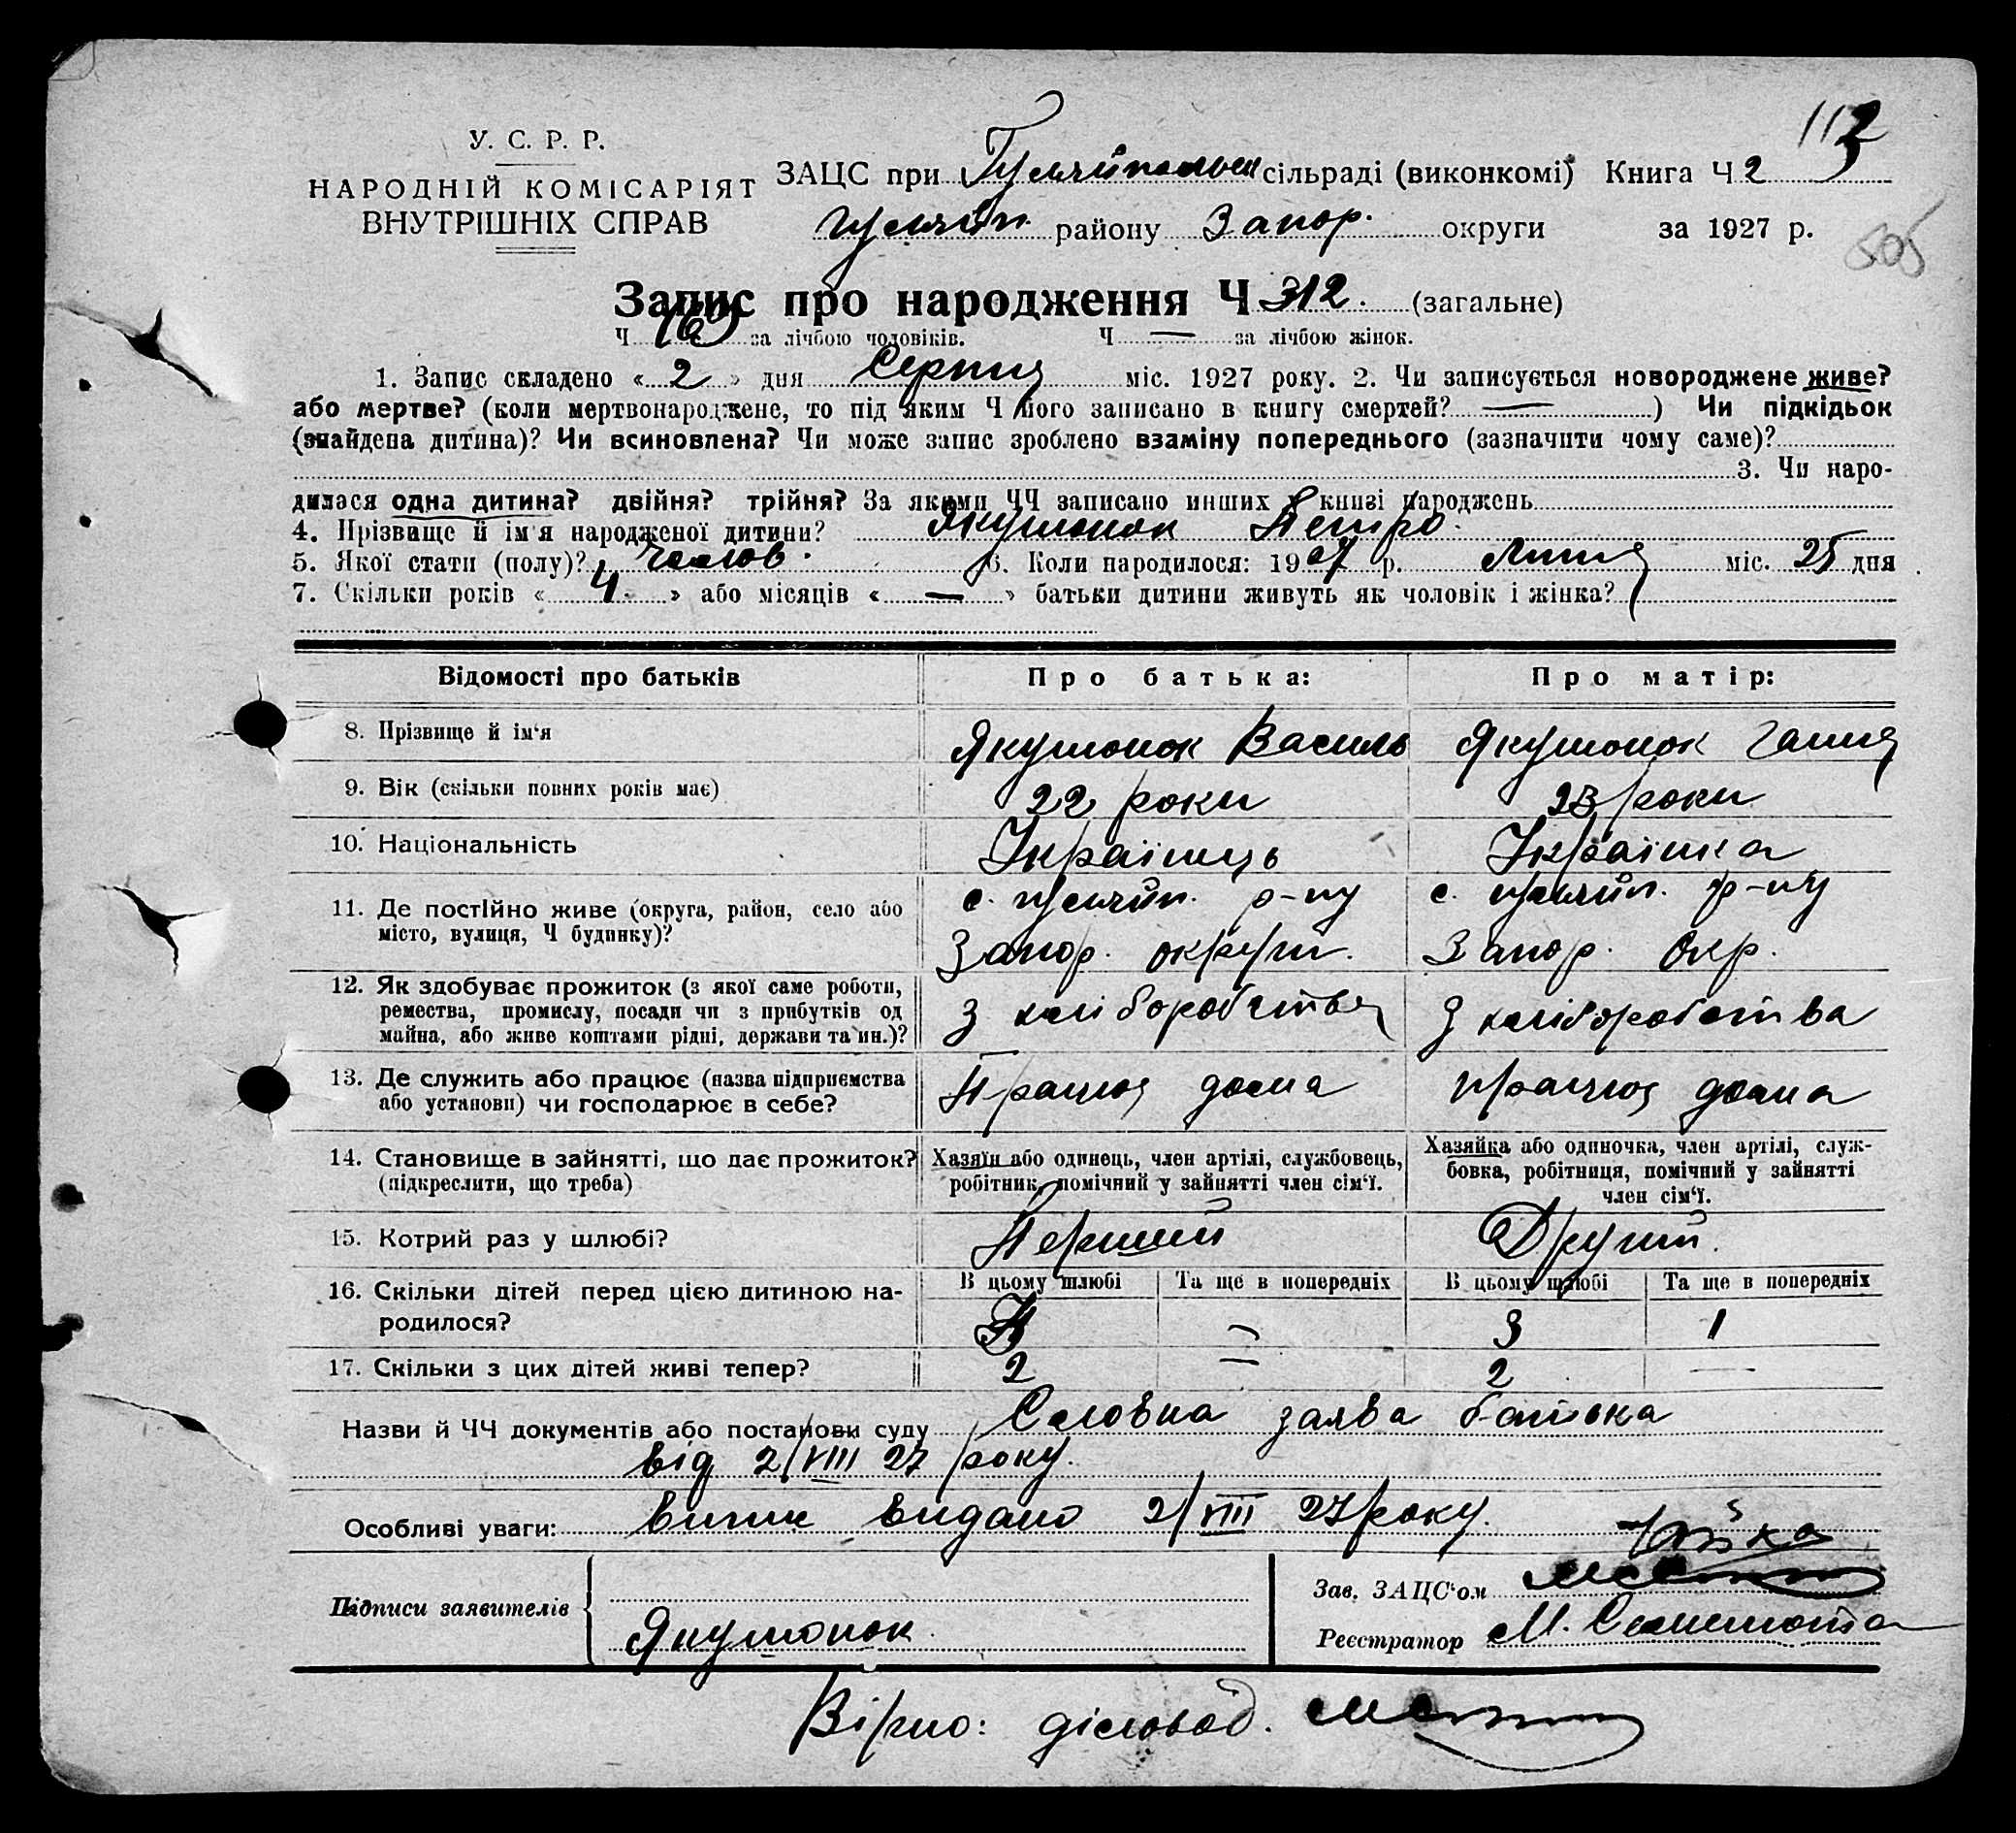 113
У. С. Р. Р.
НАРОДНІЙ КОМІСАРІЯТ
ВНУТРІШНІХ СПРАВ
ЗАЦС при Гуляйпільск сільраді (виконкомі) Книга Ч 2
Гуляйп. району Запор. округи за 1927 р.
505
Запис про народження Ч 312. (загальне)
Ч 169 за лічбою чоловіків. Ч — за лічбою жінок.
1. Запис складено « 2 » дня Серпня міс. 1927 року. 2. Чи записується новороджене живе?
або мертве? (коли мертвонароджене, то під яким Ч його записано в книгу смертей? — ) Чи підкідьок
(знайдена дитина)? Чи всиновлена? Чи може запис зроблено взаміну попереднього (зазначити чому саме)?
3. Чи наро-
дилася одна дитина? двійня? трійня? За якими ЧЧ записано инших у книзі народжень
4. Прізвище й ім'я народженої дитини? Якушонок Петро.
5. Якої стати (полу)? чолов. 6. Коли народилося: 1927 р. Липня міс. 25 дня
7. Скільки років « 4 » або місяців « — » батьки дитини живуть як чоловік і жінка?
Відомості про батьків Про батька: Про матір:
8. Прізвище й ім'я Якушонок Василь Якушонок Ганна
9. Вік (скільки повних років має) 22 роки 23 роки
10. Національність Українець Українка
11. Де постійно живе (округа, район, село або
місто, вулиця, Ч будинку)?
с. Гуляйп. р-ну
Запор. округи.
с. Гуляйп. р-ну
Запор. Окр.
12. Як здобуває прожиток (з якої саме роботи,
ремества, промислу, посади чи з прибутків од
майна, або живе коштами рідні, держави та ин.)?
З хліборобства З хліборобства
13. Де служить або працює (назва підприємства
або установи) чи господарює в себе?
Працює дома працює дома
14. Становище в зайнятті, що дає прожиток?
(підкреслити, що треба)
Хазяїн або одинець, член артілі, службовець,
робітник, помічний у зайнятті член сім'ї.
Хазяйка або одиночка, член артілі, служ-
бовка, робітниця, помічний у зайнятті
член сім'ї.
15. Котрий раз у шлюбі? Перший Другий.
16. Скільки дітей перед цією дитиною на-
родилося?
В цьому шлюбі Та ще в попередніх В цьому шлюбі Та ще в попередніх
— 3 1
17. Скільки з цих дітей живі тепер? 2 — 2 —
Назви й ЧЧ документів або постанови суду Словна заява батька
від 2/VIII 27 року.
Особливі уваги: випис видано 2/VIII 27 року.
Підписи заявителів
Якушонок
Зав. ЗАЦС'ом
Реєстратор М.
Вірно: діловод.